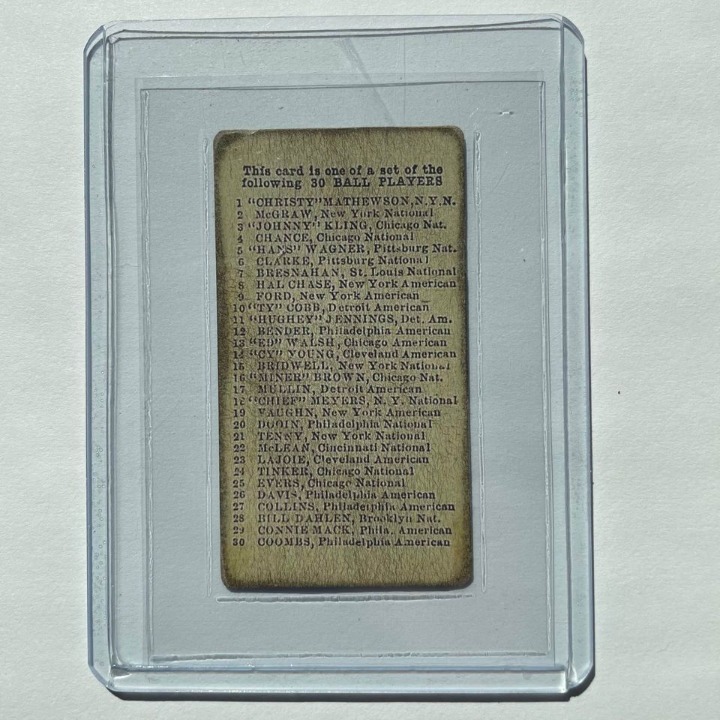 This card is one of a set of the
following 30 BALL PLAYERS
1 "CHRISTY" MATHEWSON, N.Y.N.
2 McGRAW, New York National
3 "JOHNNY" KLING, Chicago Nat.
4 CHANCE, Chicago National
5 "HANS" WAGNER, Pittsburg Nat.
6 CLARKE, Pittsburg National
7 BRESNAHAN, St. Louis National
8 HAL CHASE, New York American
9 FORD, New York American
10 "TY" COBB, Detroit American
11 "HUGHEY" JENNINGS, Det. Am.
12 BENDER, Philadelphia American
13 "ED" WALSH, Chicago American
14 "CY" YOUNG, Cleveland American
15 BRIDWELL, New York National
16 "MINER" BROWN, Chicago Nat.
17 MULLIN, Detroit American
18 "CHIEF" MEYERS, N. Y. National
19 VAUGHN, New York American
20 DOOIN, Philadelphia National
21 TENNY, New York National
22 McLEAN, Cincinnati National
23 LAJOIE, Cleveland American
24 TINKER, Chicago National
25 EVERS, Chicago National
26 DAVIS, Philadelphia American
27 COLLINS, Philadelphia American
28 BILL DAHLEN, Brooklyn Nat.
29 CONNIE MACK, Phila. American
30 COOMBS, Philadelphia American